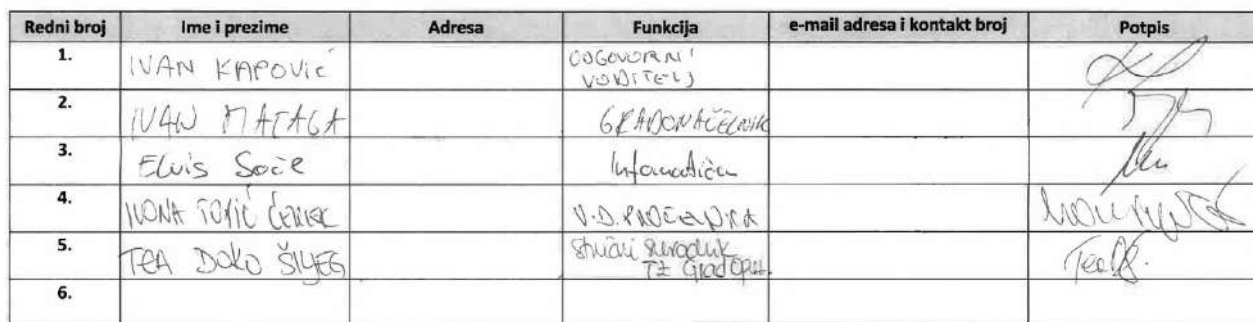 Redni broj Ime i prezime Adresa Funkcija e-mail adresa i kontakt broj Potpis
1. IVAN KAPOVIĆ ODGOVORNI
VODITELJ
2. IVAN MATAGA GRADONAČELNIK
3. Elvis Soče
4. IVONA TOMIĆ V.D. PROČELNIKA
5. TEA DOKO ŠILJEG Stručni suradnik
TZ Grad
6.